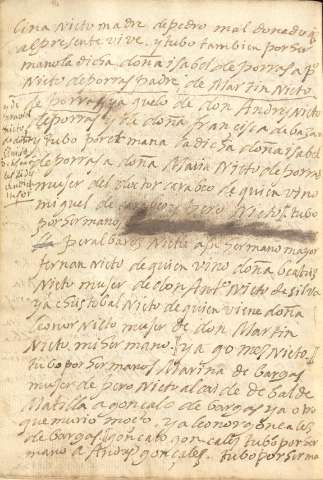 Cina Nieto madre de pedro mal donado q
al presente vive. y tubo tambien por her
mano la dicha doña isabel de porras a pº
Nieto de porras padre de Martin Nieto
de porras, ya guelo de don Andres Nieto
de porras y de doña francisca de baçan
y tubo por ermana la dicha doña isabel
de porras a doña Maria Nieto de porras
muger del doctor carabeo de quien vino
miguel de carabeo y pero Nieto. tubo
por hermano
peralbares Nieto a su hermano mayor
fernan Nieto de quien vino doña beatriz
Nieto muger de don Antº Nieto de silva
ya christobal Nieto de quien viene doña
leonor Nieto muger de don Martin
Nieto, mi hermano. ya gomes Nieto.
tubo por hermanos Marina de bargas
muger de pero Nieto alcaide de bal de
Matilla a gonçalo de bargas ya otro
que murio moço, ya leonor gonçales
de bargas. gonçalo gonçales tubo por her
mano a Andres gonçales. tubo por herma